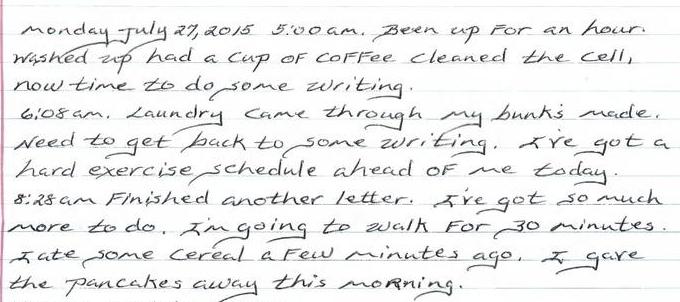 Monday July 27, 2015 5:00 am. Been up For an hour.
Washed up had a cup OF COFFee cleaned the cell,
now time to do some writing.
6:08 am. Laundry came through my bunk's made.
Need to get back to some writing. I've got a
hard exercise schedule ahead OF me today.
8:28 am Finished another letter. I've got so much
more to do. I'm going to walk For 30 minutes.
I ate some cereal a Few minutes ago. I gave
the pancakes away this morning.